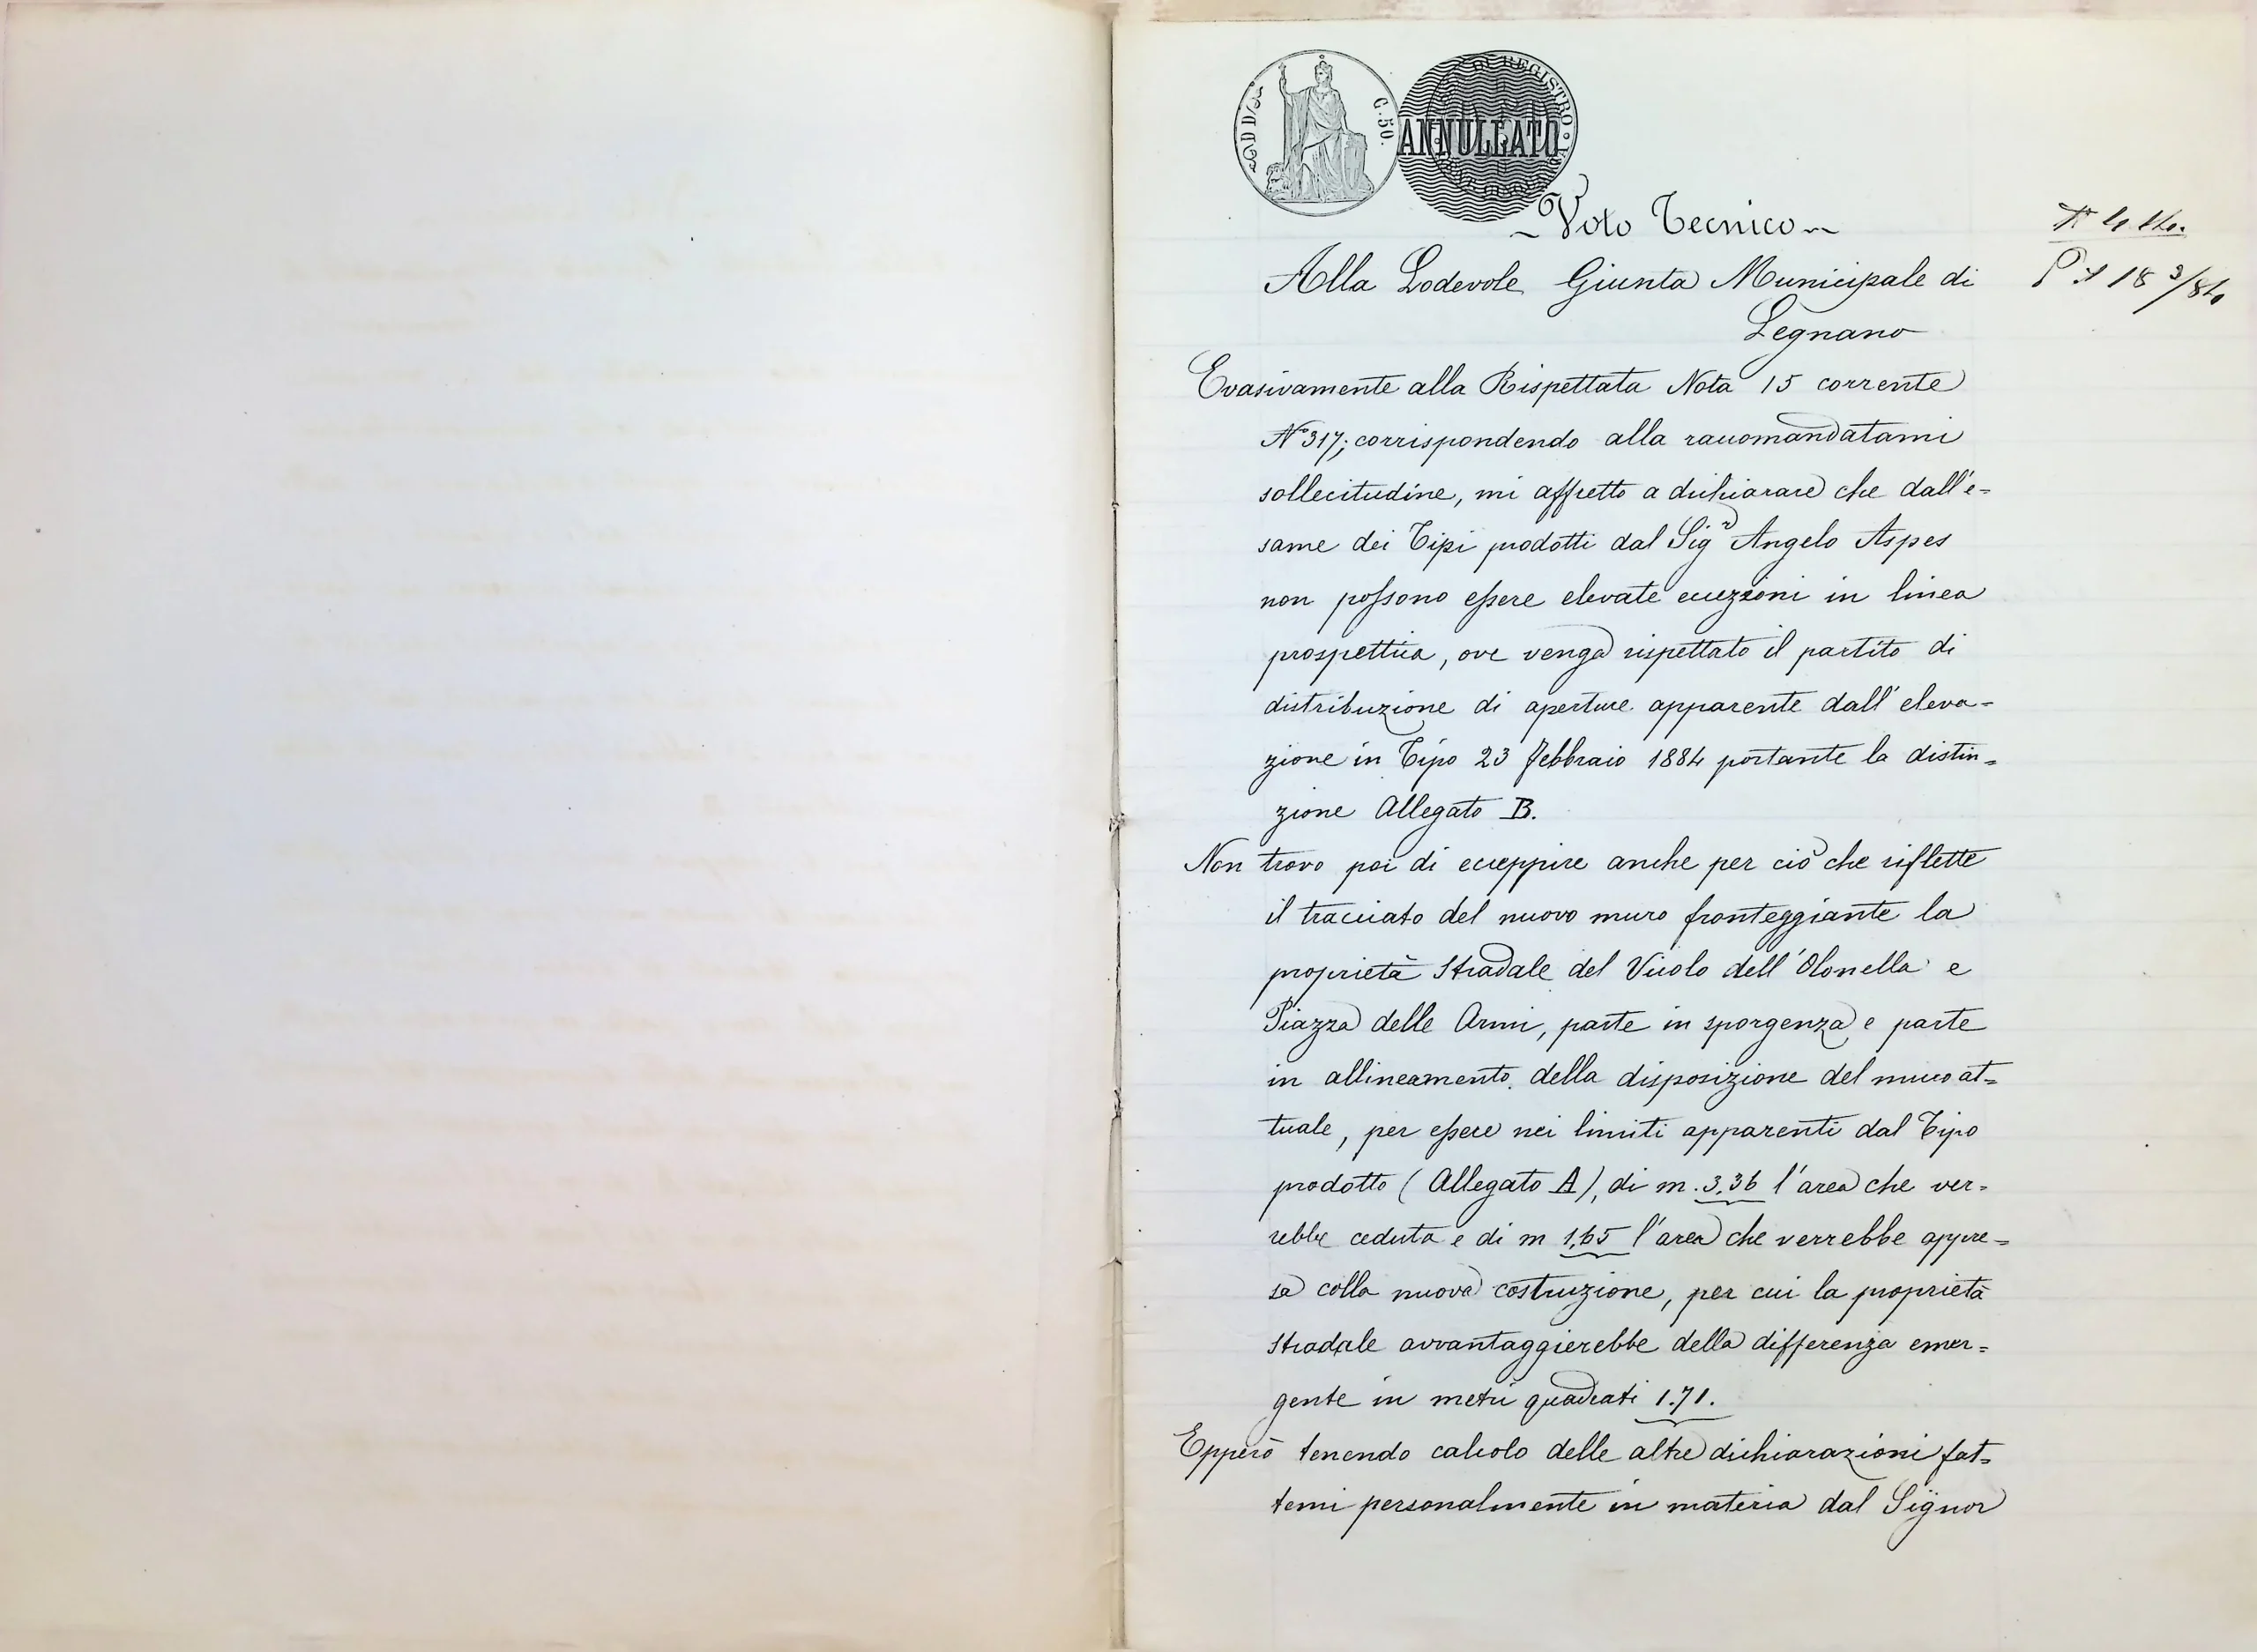 C. 50.
DI REGISTRO
ANNULLATO
~ Voto Tecnico ~
Alla Lodevole Giunta Municipale di
Legnano
P 18 3/84
Evasivamente alla Rispettata Nota 15 corrente
N° 317; corrispondendo alla raccomandatami
sollecitudine, mi affretto a dichiarare che dall'e=
same dei Tipi prodotti dal Sigr Angelo Aspes
non possono essere elevate eccezioni in linea
prospettica, ove venga rispettato il partito di
distribuzione di aperture apparente dall'eleva=
zione in Tipo 23 febbraio 1884 portante la distin=
zione Allegato B.
Non trovo poi di ecceppire anche per ciò che riflette
il tracciato del nuovo muro fronteggiante la
proprietà stradale del Vicolo dell'Olonella e
Piazza delle Armi, parte in sporgenza e parte
in allineamento della disposizione del muro at=
tuale, per essere nei limiti apparenti dal Tipo
prodotto (Allegato A), di m. 3,36 l'area che ver=
rebbe ceduta e di m 1,65 l'area che verrebbe appre=
sa colla nuova costruzione, per cui la proprietà
stradale avvantaggierebbe della differenza emer=
gente in metri quadrati 1.71.
Epperò tenendo calcolo delle altre dichiarazioni fat=
temi personalmente in materia dal Signor